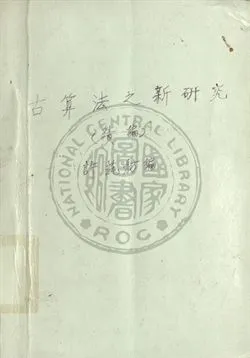 古算法之新研究
(續編)
許蒓舫編
NATIONAL CENTRAL LIBRARY
國家圖書館
ROC